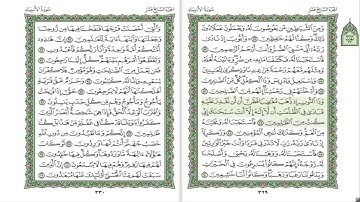 الجزء السابع عشر
سورة الأنبياء
ومن الشياطين من يغوصون له ويعملون عملا
دون ذلك وكنا لهم حافظين وأيوب إذ نادى
ربه أني مسني الضر وأنت أرحم الراحمين
فاستجبنا له فكشفنا ما به من ضر وآتيناه أهله
ومثلهم معهم رحمة من عندنا وذكرى للعابدين
وإسماعيل وإدريس وذا الكفل كل من الصابرين
وأدخلناهم في رحمتنا إنهم من الصالحين
وذا النون إذ ذهب مغاضبا فظن أن لن نقدر عليه
فنادى في الظلمات أن لا إله إلا أنت سبحانك
إني كنت من الظالمين فاستجبنا له ونجيناه
من الغم وكذلك ننجي المؤمنين وزكريا
إذ نادى ربه رب لا تذرني فردا وأنت خير الوارثين
فاستجبنا له ووهبنا له يحيى وأصلحنا له
زوجه إنهم كانوا يسارعون في الخيرات
ويدعوننا رغبا ورهبا وكانوا لنا خاشعين
٣٢٩
سورة الأنبياء
الجزء السابع عشر
والتي أحصنت فرجها فنفخنا فيها من روحنا
وجعلناها وابنها آية للعالمين إن هذه
أمتكم أمة واحدة وأنا ربكم فاعبدون
وتقطعوا أمرهم بينهم كل إلينا راجعون
فمن يعمل من الصالحات وهو مؤمن فلا كفران
لسعيه وإنا له كاتبون وحرام على قرية
أهلكناها أنهم لا يرجعون حتى إذا فتحت
يأجوج ومأجوج وهم من كل حدب ينسلون
واقترب الوعد الحق فإذا هي شاخصة أبصار الذين
كفروا يا ويلنا قد كنا في غفلة من هذا بل كنا
ظالمين إنكم وما تعبدون من دون الله
حصب جهنم أنتم لها واردون لو كان
هؤلاء آلهة ما وردوها وكل فيها خالدون
لهم فيها زفير وهم فيها لا يسمعون إن الذين
سبقت لهم منا الحسنى أولئك عنها مبعدون
٣٣٠